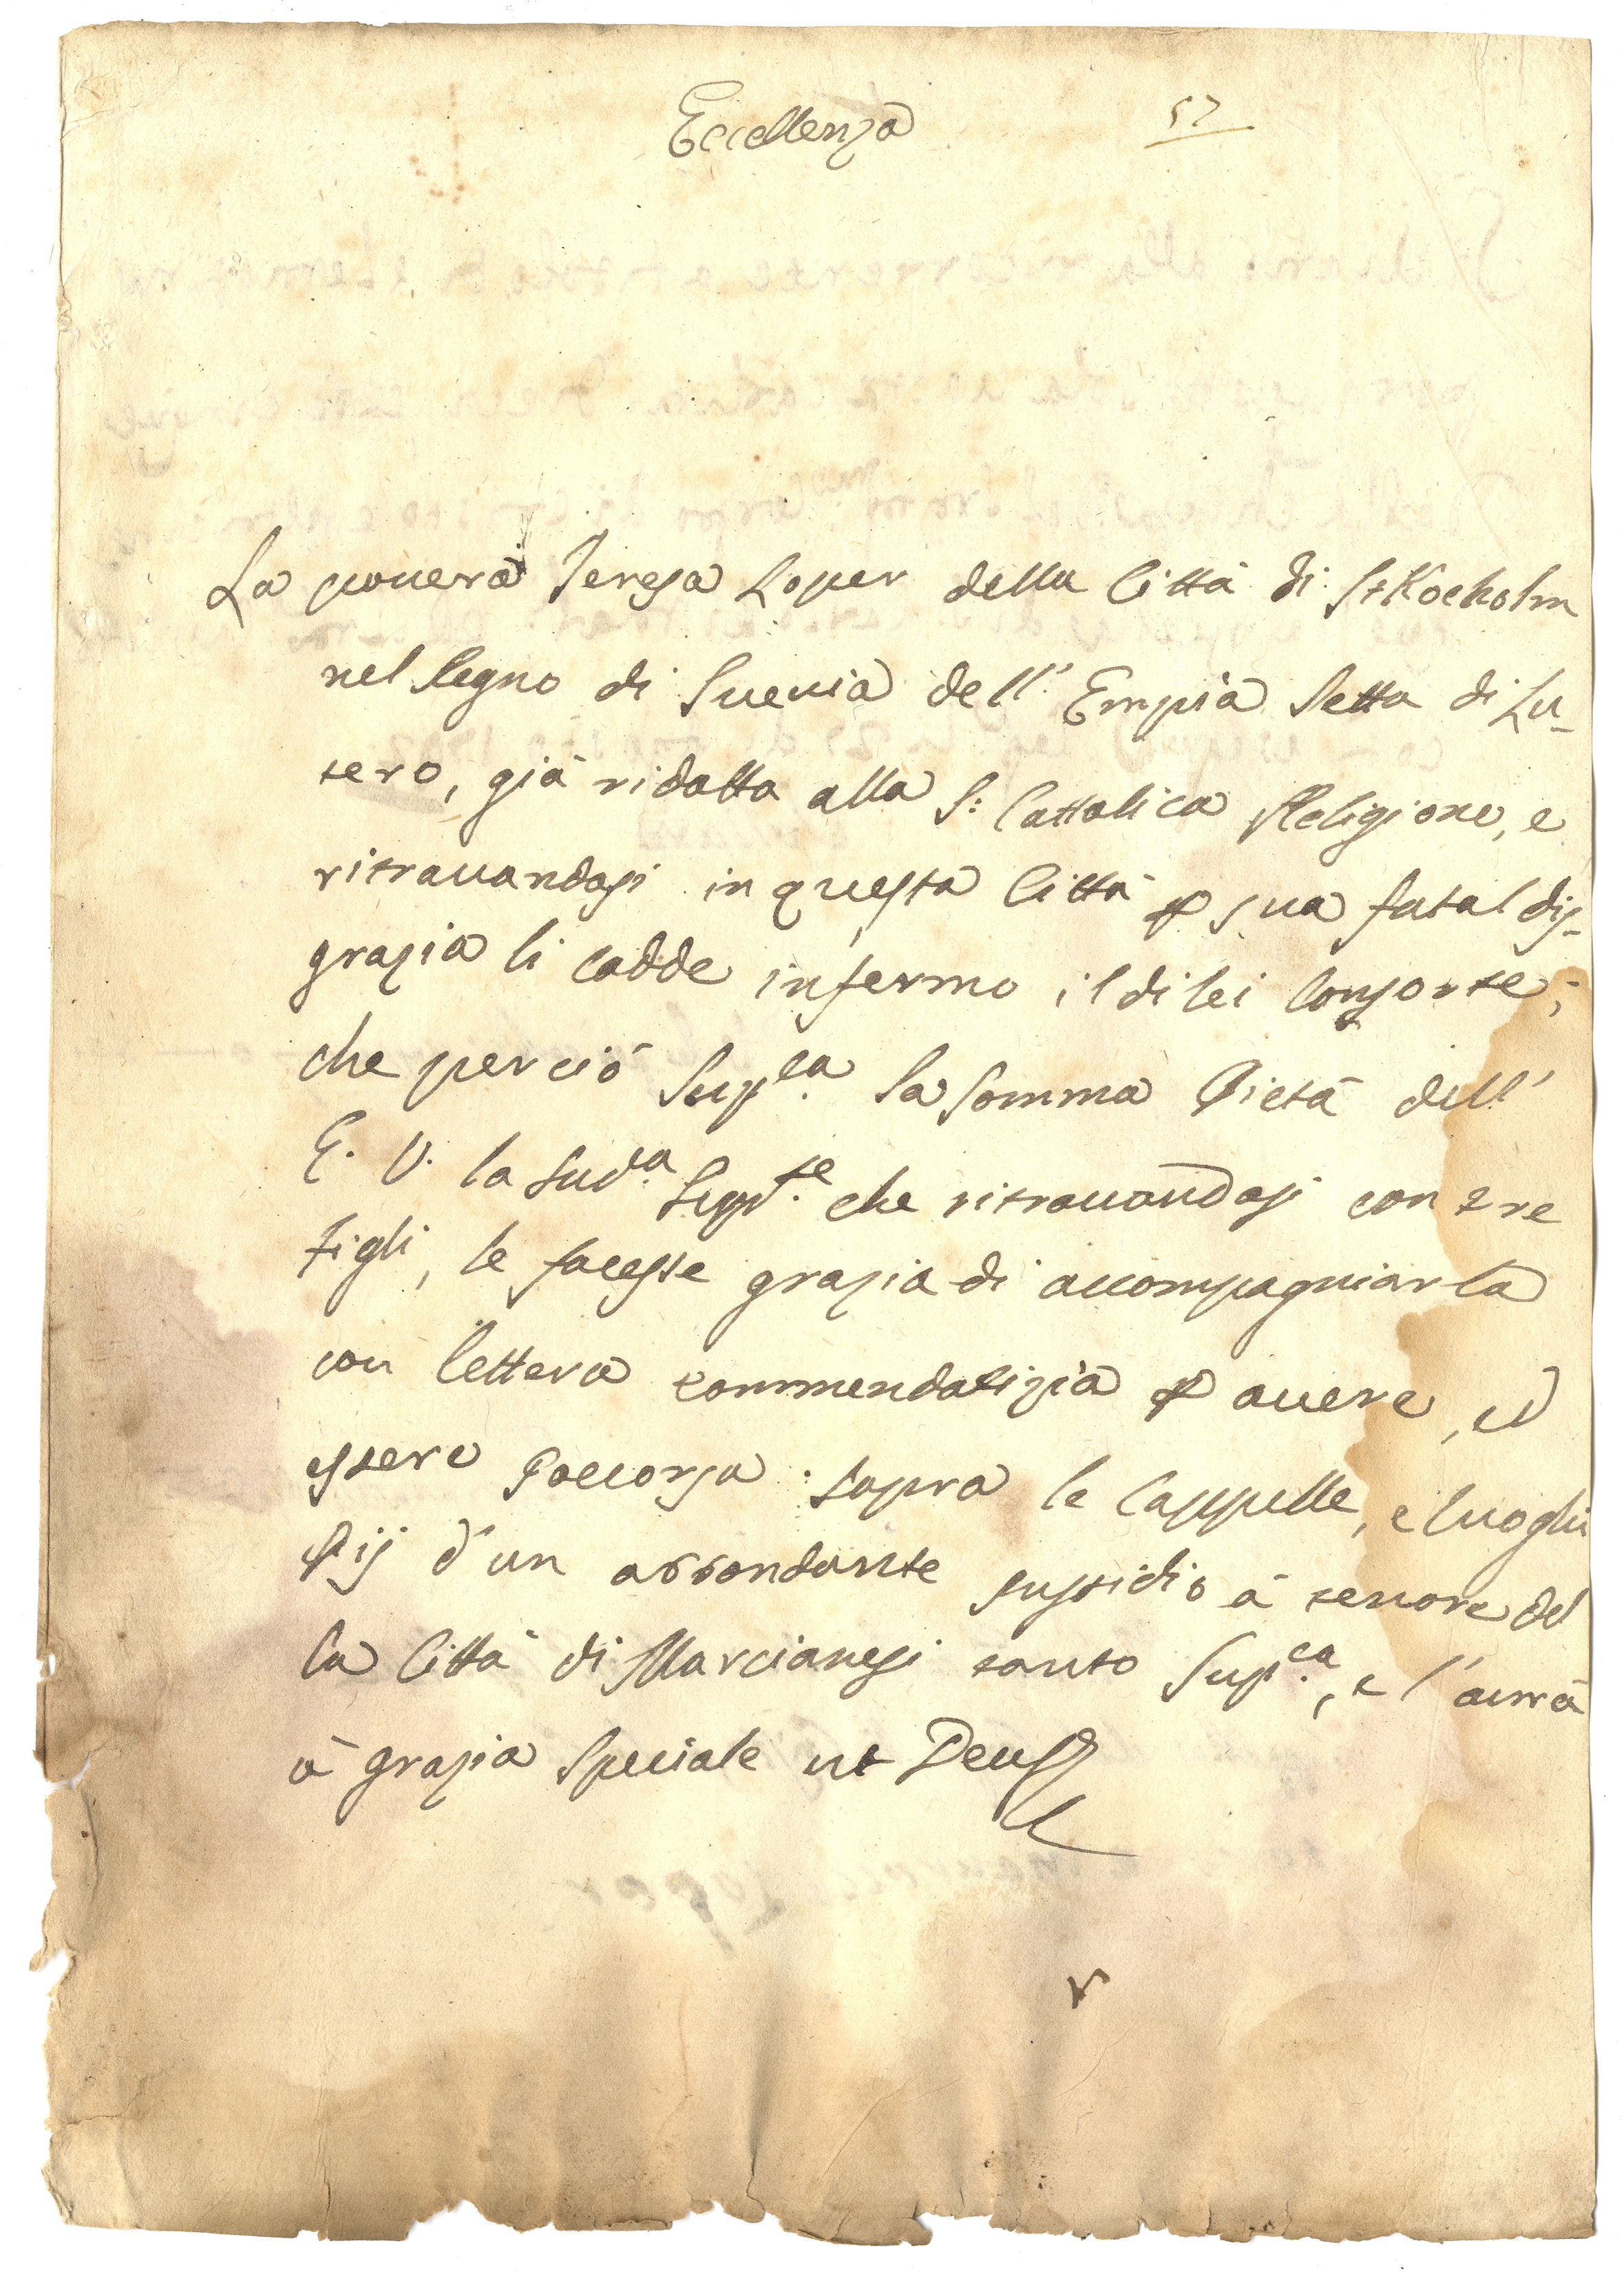 Eccellenza
57
La pouera Teresa Loper della Città di StKockolm
nel Regno di Sueuia dell' Empia Setta di Lu-
tero, già ridotta alla S: Cattolica Religione, e
ritrouandosi in questa Città p sua fatal dis-
grazia li cadde infermo il di lei Consorte;
che perciò Supca. la Somma Pietà dell'
E. V. la Suda. Suppte. che ritrouandosi con tre
figli, le facesse grazia di accompagniarla
con lettera commendatizia p auere, ed
essere soccorsa sopra le Cappelle, e luoghi
Pij d'un abbondante sussidio à tenore del
la Città di Marcianesi tanto Supca., e l'aurà
à grazia Speciale ut Deus